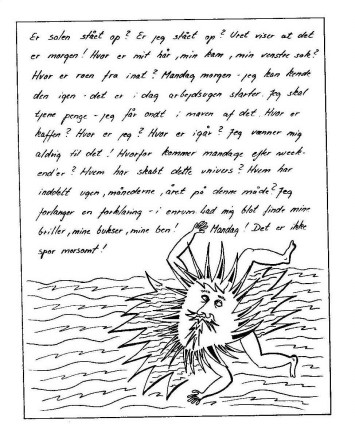 Er solen stået op? Er jeg stået op? Uret viser at det
er morgen! Hvor er mit hår, min kam, min venstre sok?
Hvor er roen fra inat? Mandag morgen - jeg kan kende
den igen - det er i dag arbejdsugen starter. Jeg skal
tjene penge - jeg får ondt i maven af det. Hvor er
kaffen? Hvor er jeg? Hvor er igår? Jeg vænner mig
aldrig til det! Hvorfor kommer mandage efter week-
end'er? Hvem har skabt dette univers? Hvem har
inddelt ugen, månederne, året på denne måde? Jeg
forlanger en forklaring - i enrum lad mig blot finde mine
briller, mine bukser, mine ben! Mandag! Det er ikke
spor morsomt!